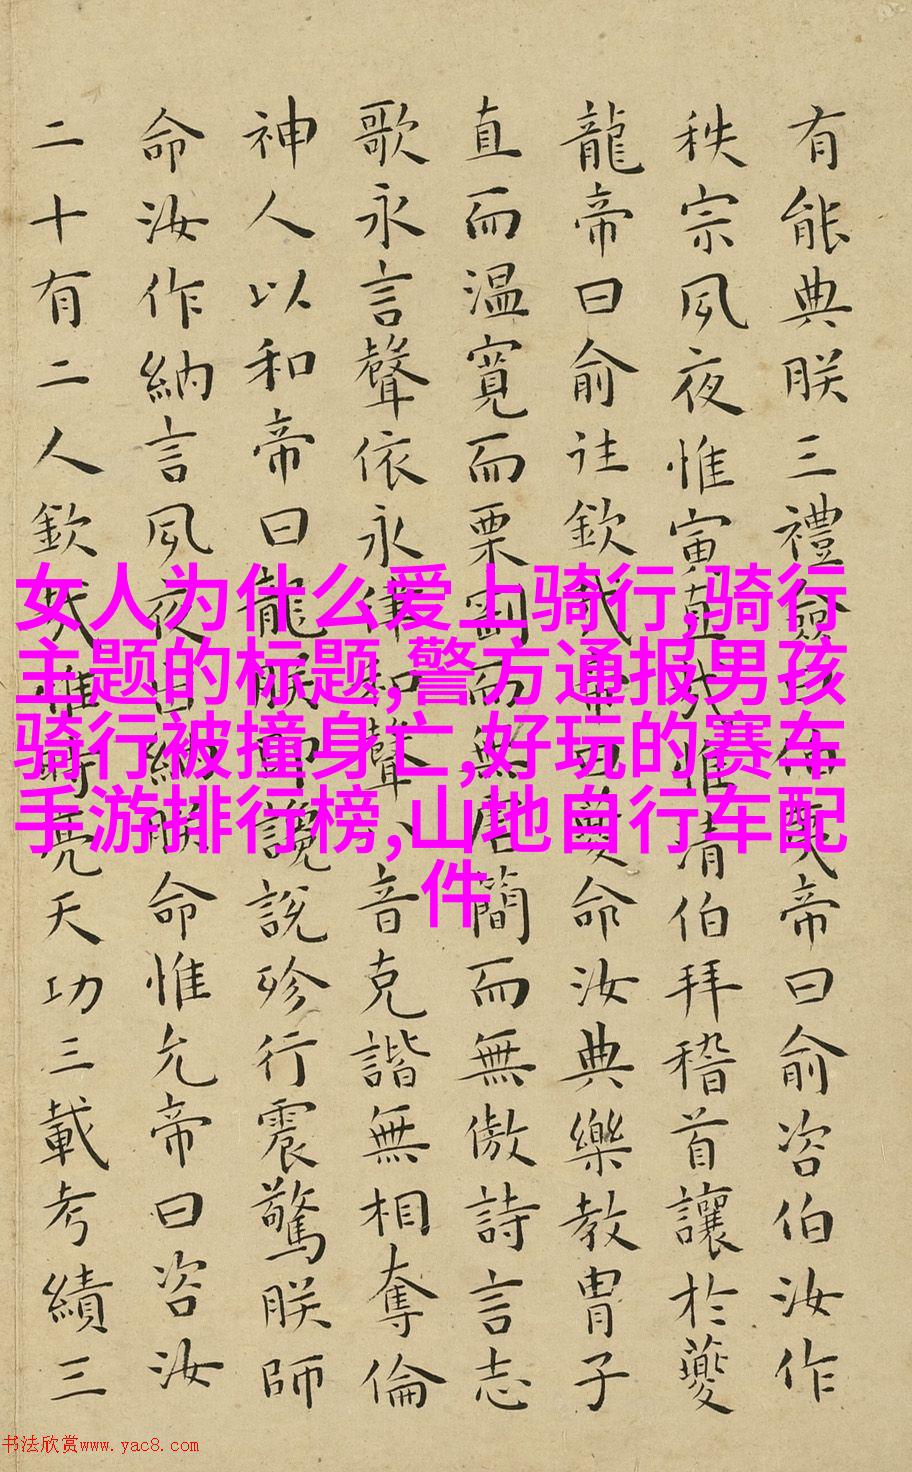 有能典朕三禮僉曰伯夷帝曰俞咨伯汝作
秩宗夙夜惟寅直哉惟清伯拜稽首讓於夔
龍帝曰俞往欽哉帝曰夔命汝典樂教冑子
直而温寬而栗剛而無虐簡而無傲詩言志
歌永言聲依永律和聲八音克諧無相奪倫
神人以和帝曰龍朕堲讒說殄行震驚朕師
命汝作納言夙夜出納朕命惟允帝曰咨汝
二十有二人欽哉惟時亮天功三載考績三
女人为什么爱上骑行,骑行
主题的标题,警方通报男孩
骑行被撞身亡,好玩的赛车
手游排行榜,山地自行车配
件
书法欣赏www.yac8.com